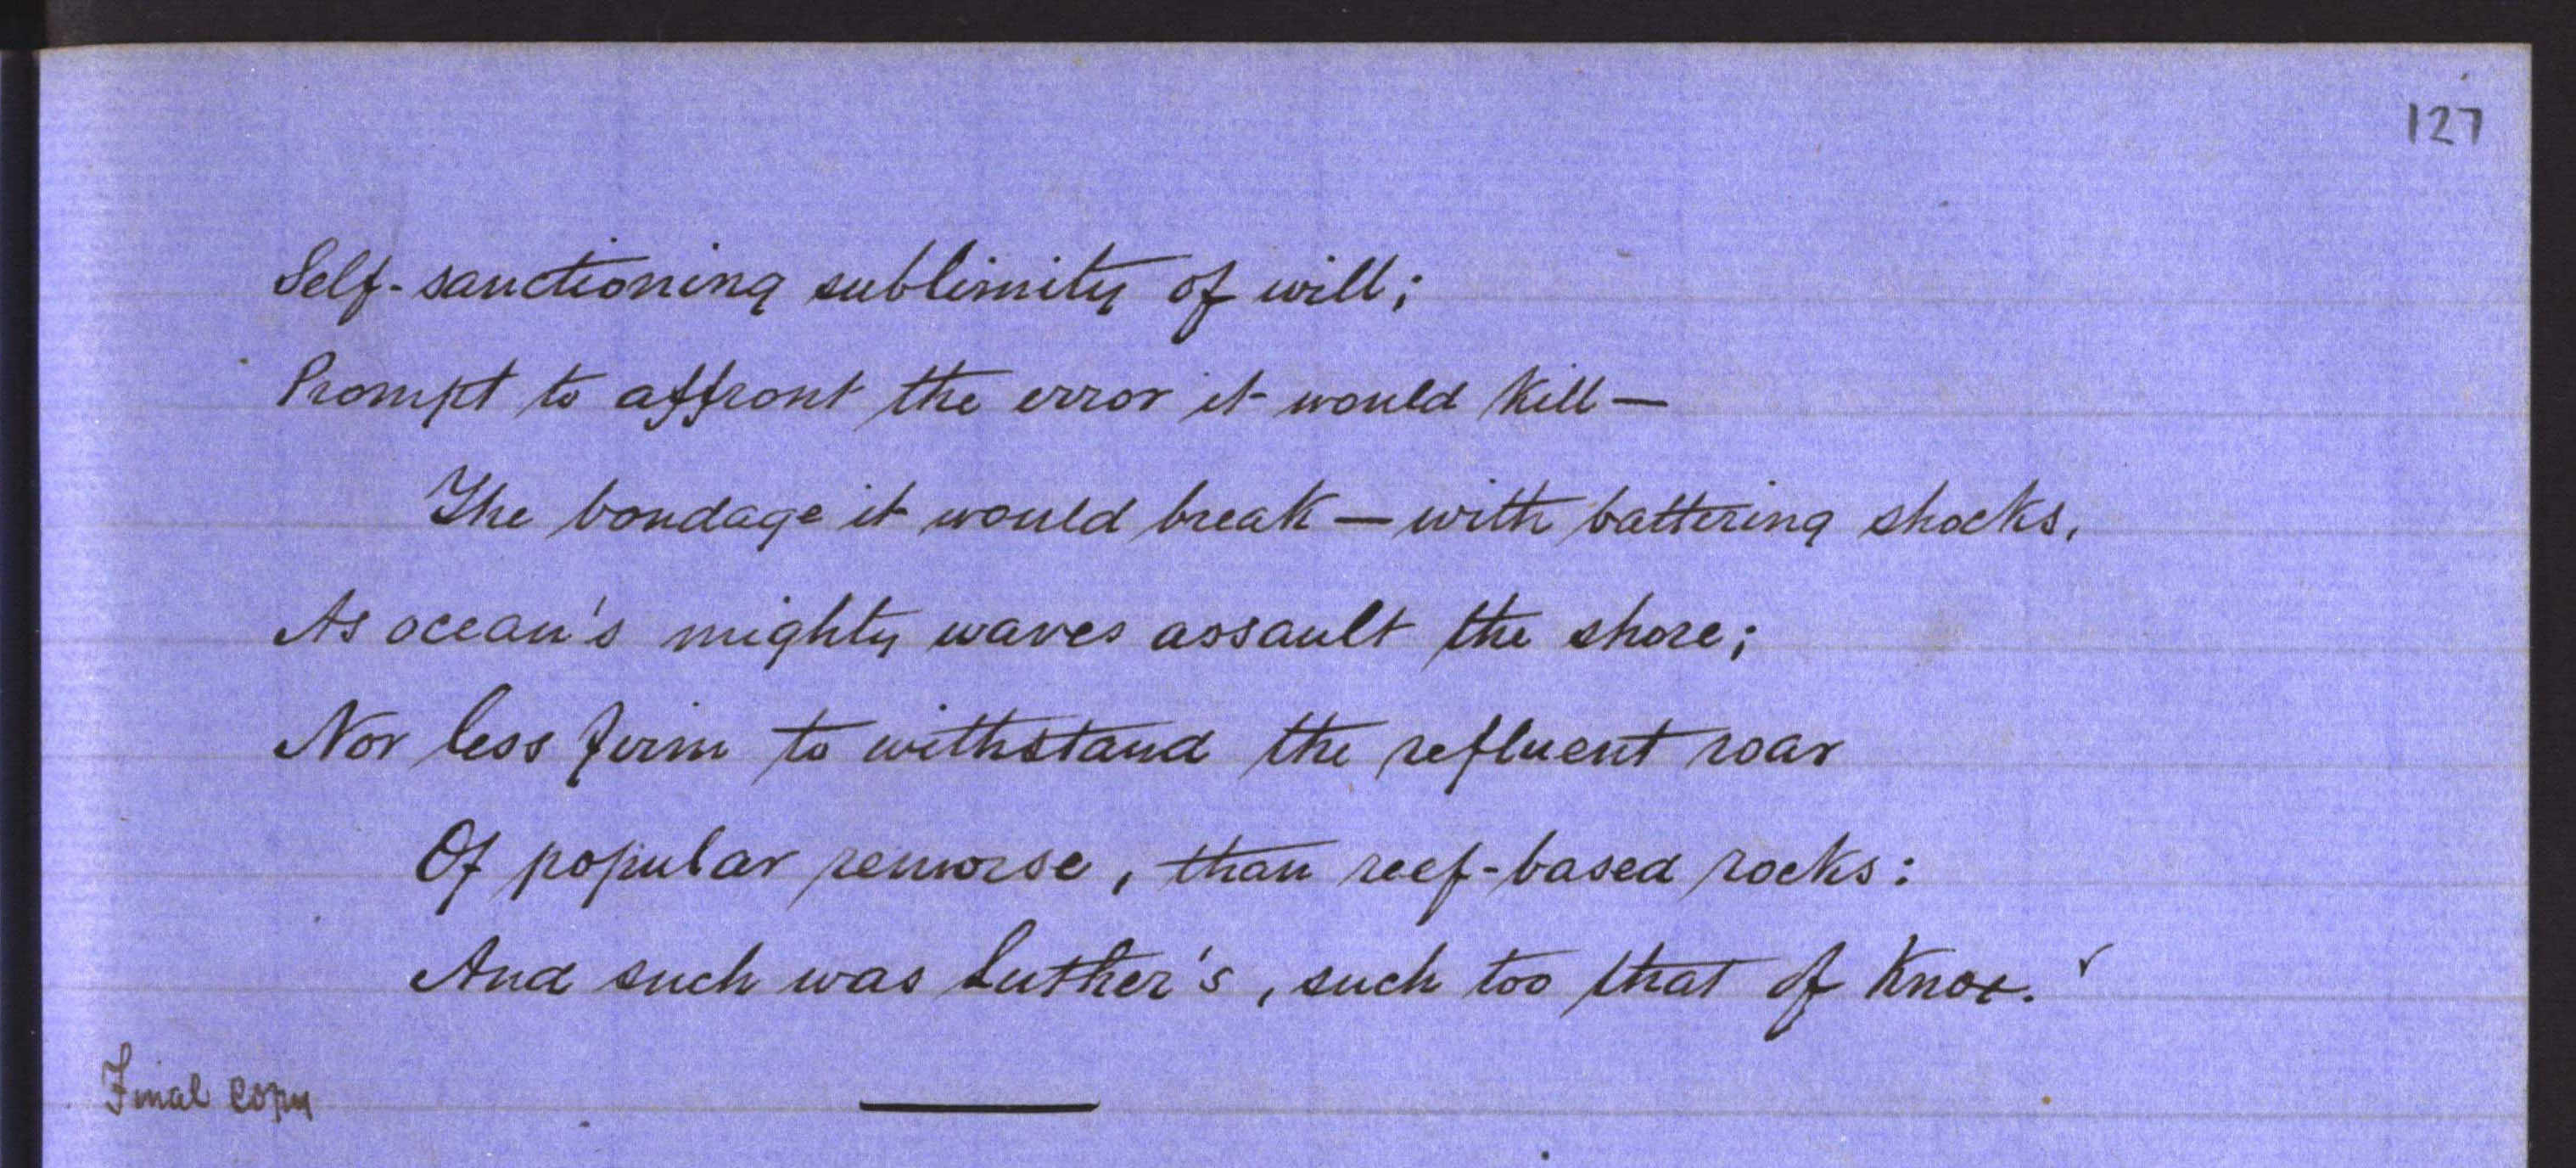 127
Self-sanctioning sublimity of will;
Prompt to affront the error it would kill —
The bondage it would break — with battering shocks,
As ocean's mighty waves assault the shore;
Nor less firm to withstand the refluent roar
Of popular remorse, than reef-based rocks:
And such was Luther's, such too that of Knox.
Final copy